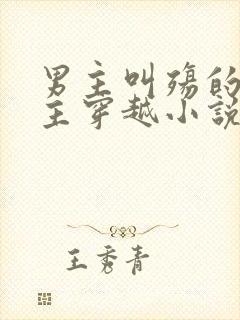 男主叫殇的
主穿越小說
王秀青